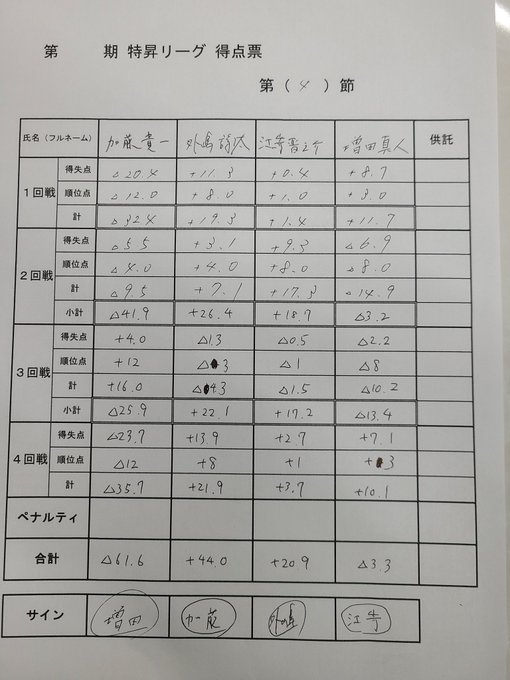 第 期 特昇リーグ 得点票
第 ( 4 ) 節
氏名 (フルネーム) 加藤貴一 外島 江崎 増田真人 供託
1回戦 得失点 △20.4 +11.3 +0.4 +8.7
順位点 △12.0 +8.0 +1.0 +3.0
計 △32.4 +19.3 +1.4 +11.7
2回戦 得失点 △5.5 +3.1 +9.3 △6.9
順位点 △4.0 +4.0 +8.0 △8.0
計 △9.5 +7.1 +17.3 △14.9
小計 △41.9 +26.4 +18.7 △3.2
3回戦 得失点 +4.0 △1.3 △0.5 △2.2
順位点 +12 △3 △1 △8
計 +16.0 △4.3 △1.5 △10.2
小計 △25.9 +22.1 +17.2 △13.4
4回戦 得失点 △23.7 +13.9 +2.7 +7.1
順位点 △12 +8 +1 +3
計 △35.7 +21.9 +3.7 +10.1
ペナルティ
合計 △61.6 +44.0 +20.9 △3.3
サイン 増田 加藤 外島 江崎